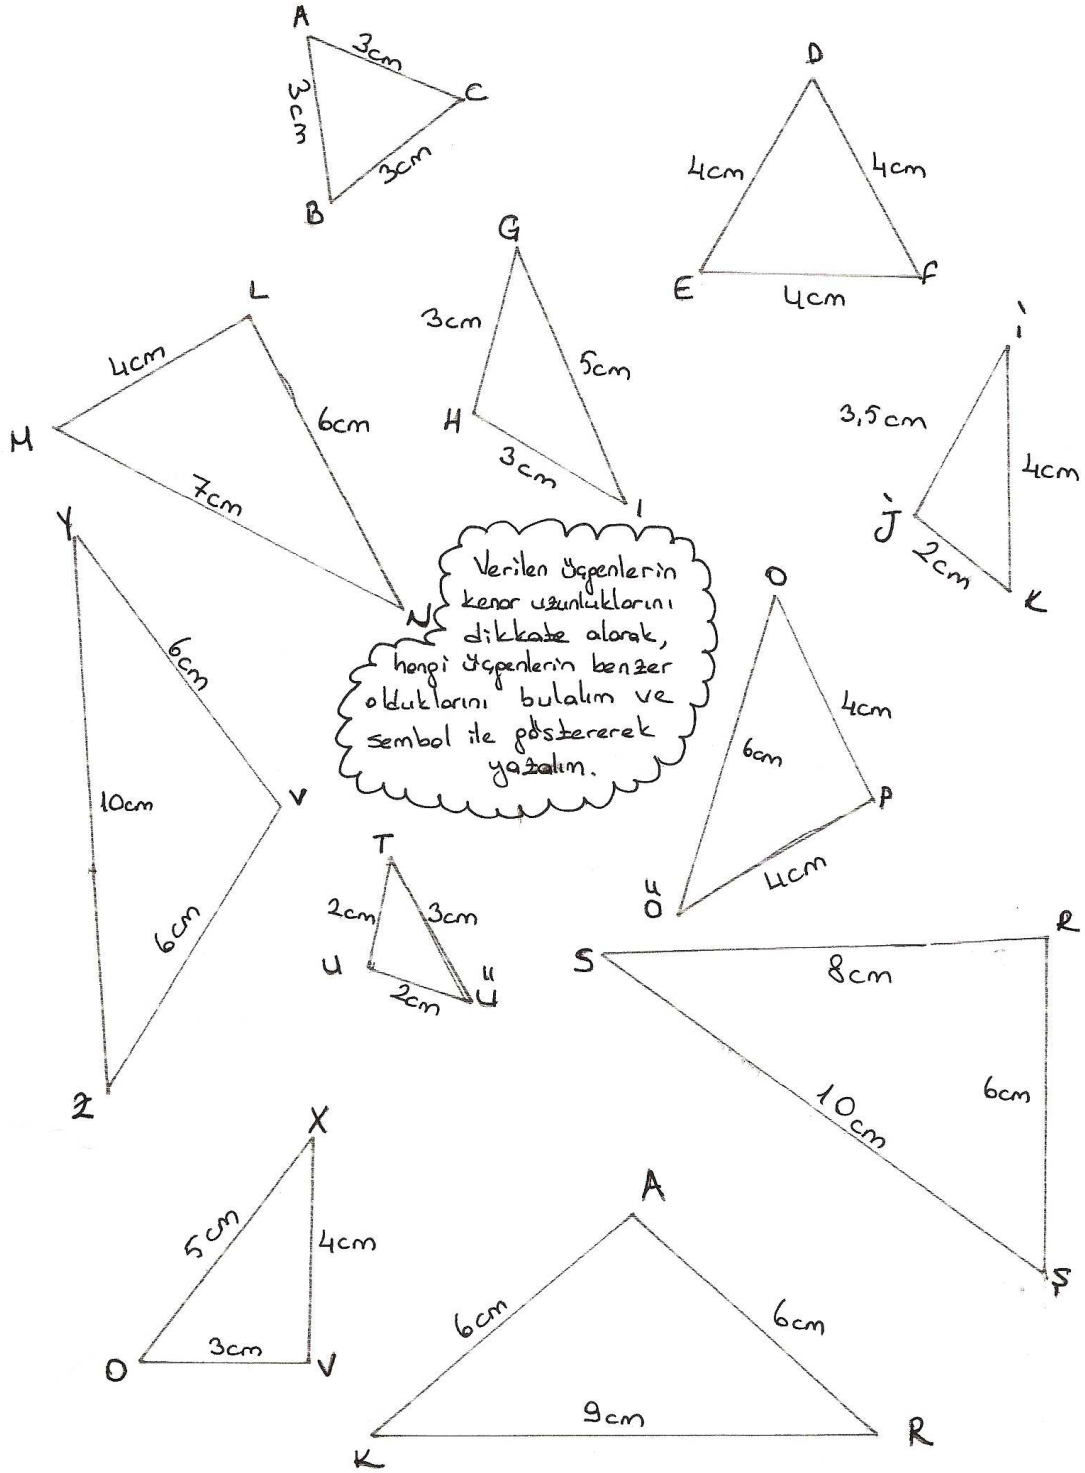 A
3cm
3cm
C
3cm
B
D
4cm
4cm
E
F
4cm
G
3cm
5cm
H
3cm
I
L
4cm
6cm
M
7cm
N
İ
3,5cm
4cm
J
2cm
K
Y
6cm
10cm
V
6cm
Z
Verilen üçgenlerin
kenar uzunluklarını
dikkate alarak,
hangi üçgenlerin benzer
olduklarını bulalım ve
sembol ile göstererek
yazalım.
O
4cm
6cm
P
4cm
Ö
T
2cm
3cm
U
2cm
Ü
S
R
8cm
6cm
10cm
Ş
X
5cm
4cm
3cm
O
V
A
6cm
6cm
9cm
K
R